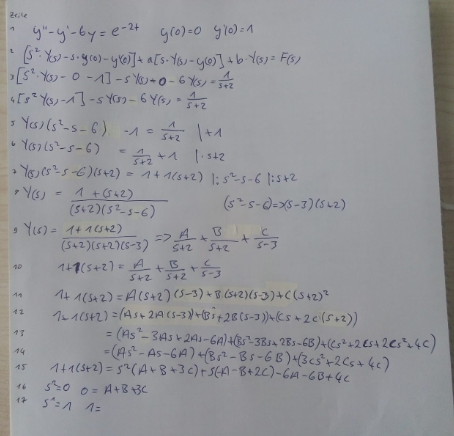 Zeile
1 y''-y'-6y = e^-2t y(0)=0 y'(0)=1
2 [s²·Y(s)-s·y(0)-y'(0)]+a[s·Y(s)-y(0)]+b·Y(s)=F(s)
3 [s²·Y(s)-0-1]-sY(s)+0-6Y(s)=1/(s+2)
4 [s²Y(s)-1]-sY(s)-6Y(s)=1/(s+2)
5 Y(s)(s²-s-6) -1 = 1/(s+2) |+1
6 Y(s)(s²-s-6) = 1/(s+2)+1 |·s+2
7 Y(s)(s²-s-6)(s+2) = 1+1(s+2) |:s²-s-6 |:s+2
Y(s) = (1+(s+2))/((s+2)(s²-s-6)) (s²-s-6)=>(s-3)(s+2)
9 Y(s)= (1+1(s+2))/((s+2)(s+2)(s-3)) => A/(s+2)+B/(s+2)+C/(s-3)
10 1+1(s+2)=A/(s+2)+B/(s+2)+C/(s-3)
11 1+1(s+2)=A(s+2)(s-3)+B(s+2)(s-3)+C(s+2)²
12 1+1(s+2)=(As+2A(s-3))+(Bs+2B(s-3))+(Cs+2C(s+2))
13 =(As²-3As+2As-6A)+(Bs²-3Bs+2Bs-6B)+(Cs²+2Cs+2Cs²+4C)
14 =(As²-As-6A)+(Bs²-Bs-6B)+(3Cs²+2Cs+4C)
15 1+1(s+2)=s²(A+B+3C)+s(-A-B+2C)-6A-6B+4C
16 s²=0 0=A+B+3C
17 s¹=1 1=